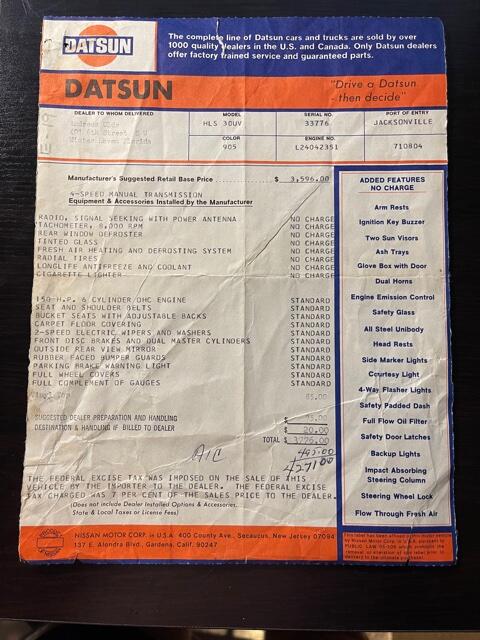 DATSUN
The complete line of Datsun cars and trucks are sold by over
1000 quality dealers in the U.S. and Canada. Only Datsun dealers
offer factory trained service and guaranteed parts.
DATSUN
"Drive a Datsun
- then decide"
DEALER TO WHOM DELIVERED
MODEL
SERIAL NO.
PORT OF ENTRY
HLS 30UV
33776
JACKSONVILLE
Street S W
Winter Haven Florida
COLOR
ENGINE NO.
905
L24042351
710804
Manufacturer's Suggested Retail Base Price $ 3,596.00
4-SPEED MANUAL TRANSMISSION
Equipment & Accessories Installed by the Manufacturer
RADIO, SIGNAL SEEKING WITH POWER ANTENNA NO CHARGE
TACHOMETER, 8,000 RPM NO CHARGE
REAR WINDOW DEFROSTER NO CHARGE
TINTED GLASS NO CHARGE
FRESH AIR HEATING AND DEFROSTING SYSTEM NO CHARGE
RADIAL TIRES NO CHARGE
LONGLIFE ANTIFREEZE AND COOLANT NO CHARGE
CIGARETTE LIGHTER NO CHARGE
150-H.P. 6 CYLINDER OHC ENGINE STANDARD
SEAT AND SHOULDER BELTS STANDARD
BUCKET SEATS WITH ADJUSTABLE BACKS STANDARD
CARPET FLOOR COVERING STANDARD
2-SPEED ELECTRIC WIPERS AND WASHERS STANDARD
FRONT DISC BRAKES AND DUAL MASTER CYLINDERS STANDARD
OUTSIDE REAR VIEW MIRROR STANDARD
RUBBER FACED BUMPER GUARDS STANDARD
PARKING BRAKE WARNING LIGHT STANDARD
FULL WHEEL COVERS STANDARD
FULL COMPLEMENT OF GAUGES STANDARD
85.00
SUGGESTED DEALER PREPARATION AND HANDLING $ 75.00
DESTINATION & HANDLING IF BILLED TO DEALER $ 20.00
TOTAL $ 3776.00
A/C 495.00
4271.00
THE FEDERAL EXCISE TAX WAS IMPOSED ON THE SALE OF THIS
VEHICLE BY THE IMPORTER TO THE DEALER. THE FEDERAL EXCISE
TAX CHARGED WAS 7 PER CENT OF THE SALES PRICE TO THE DEALER.
(Does not include Dealer Installed Options & Accessories,
State & Local Taxes or License Fees)
ADDED FEATURES
NO CHARGE
Arm Rests
Ignition Key Buzzer
Two Sun Visors
Ash Trays
Glove Box with Door
Dual Horns
Engine Emission Control
Safety Glass
All Steel Unibody
Head Rests
Side Marker Lights
Courtesy Light
4-Way Flasher Lights
Safety Padded Dash
Full Flow Oil Filter
Safety Door Latches
Backup Lights
Impact Absorbing
Steering Column
Steering Wheel Lock
Flow Through Fresh Air
NISSAN MOTOR CORP. in U.S.A. 400 County Ave., Secaucus, New Jersey 07094
137 E. Alondra Blvd., Gardena, Calif. 90247
This label has been affixed to this motor vehicle
by Nissan Motor Corp. in U.S.A. pursuant to
PUBLIC LAW 85-506 which prohibits the
removal or alteration of this label prior to
delivery to the ultimate purchaser.